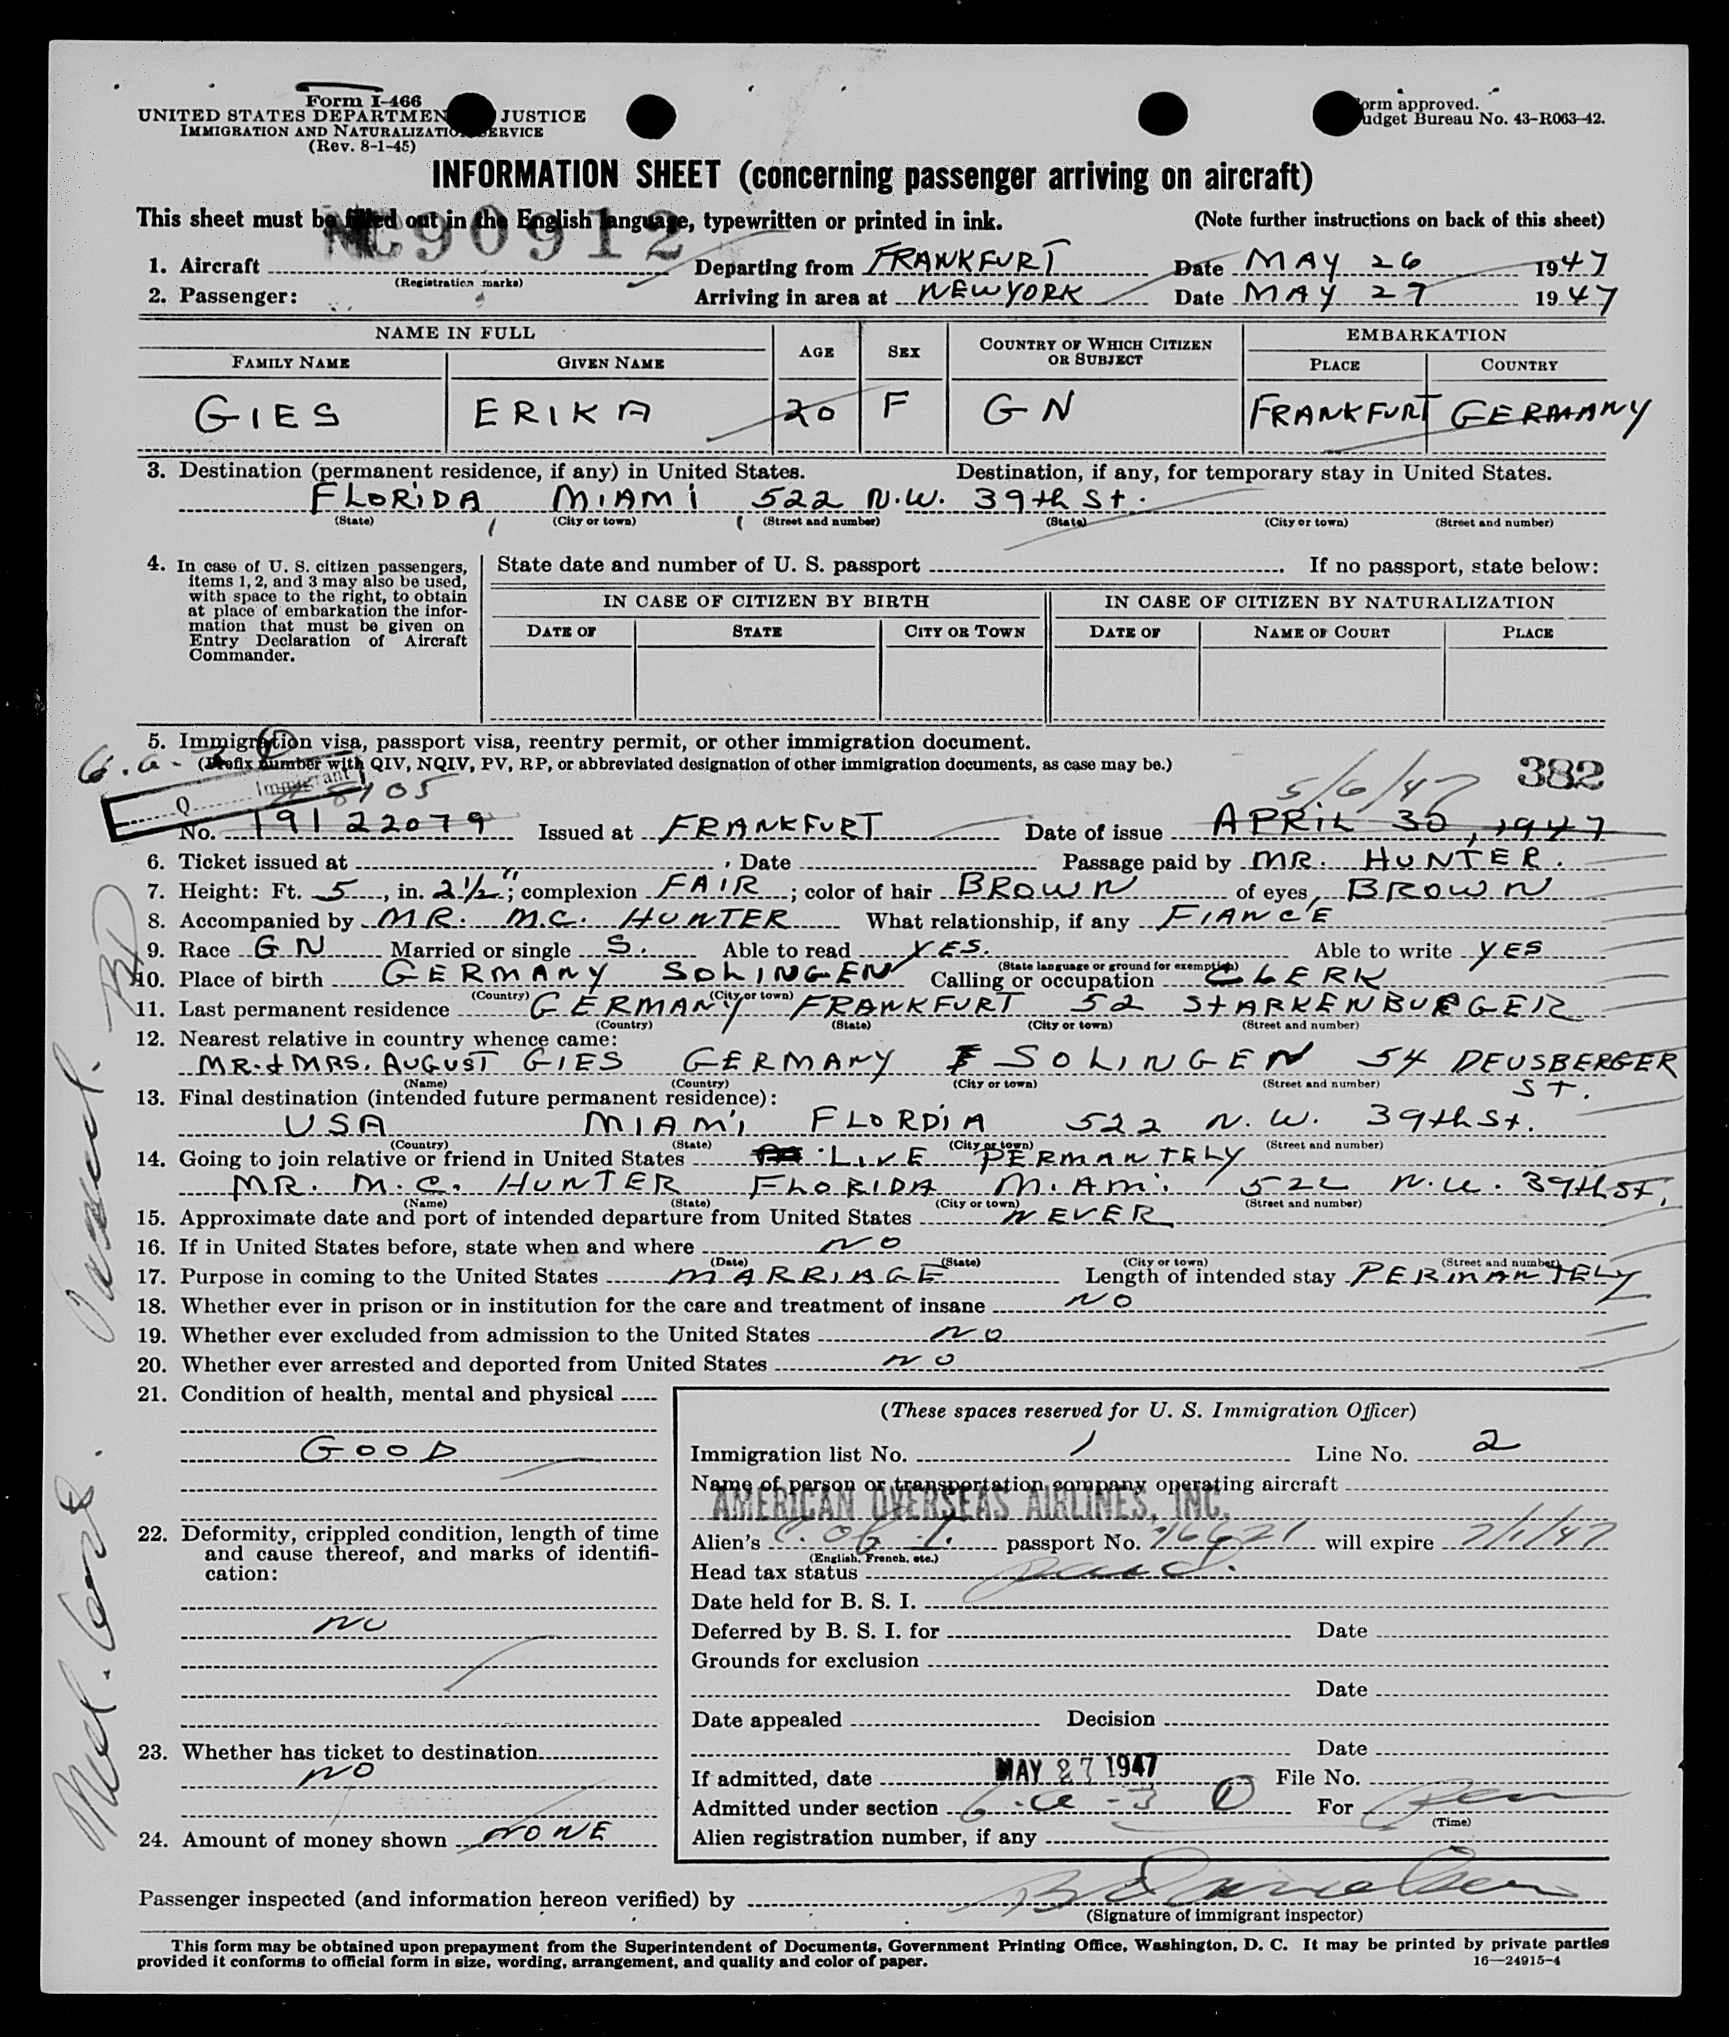 Form I-466
UNITED STATES DEPARTMEN JUSTICE
IMMIGRATION AND NATURALIZATIO SERVICE
(Rev. 8-1-45)
orm approved.
udget Bureau No. 43-R063-42.
INFORMATION SHEET (concerning passenger arriving on aircraft)
This sheet must be filled out in the English language, typewritten or printed in ink. (Note further instructions on back of this sheet)
NC90912
1. Aircraft (Registration marks) Departing from FRANKFURT Date MAY 26 1947
2. Passenger: Arriving in area at NEWYORK Date MAY 27 1947
NAME IN FULL AGE SEX COUNTRY OF WHICH CITIZEN OR SUBJECT EMBARKATION
FAMILY NAME GIVEN NAME PLACE COUNTRY
GIES ERIKA 20 F GN FRANKFURT GERMANY
3. Destination (permanent residence, if any) in United States. Destination, if any, for temporary stay in United States.
FLORIDA MIAMI 522 N.W. 39th St.
(State) (City or town) (Street and number) (State) (City or town) (Street and number)
4. In case of U. S. citizen passengers, items 1, 2, and 3 may also be used, with space to the right, to obtain at place of embarkation the information that must be given on Entry Declaration of Aircraft Commander.
State date and number of U. S. passport If no passport, state below:
IN CASE OF CITIZEN BY BIRTH IN CASE OF CITIZEN BY NATURALIZATION
DATE OF STATE CITY OR TOWN DATE OF NAME OF COURT PLACE
5. Immigration visa, passport visa, reentry permit, or other immigration document.
(Prefix number with QIV, NQIV, PV, RP, or abbreviated designation of other immigration documents, as case may be.)
6.a-3 1
Q Immigrant
5/6/47 382
No. 19122079 Issued at FRANKFURT Date of issue APRIL 30, 1947
6. Ticket issued at , Date Passage paid by MR. HUNTER.
7. Height: Ft. 5, in. 2 1/2"; complexion FAIR; color of hair BROWN of eyes, BROWN
8. Accompanied by MR. M.C. HUNTER What relationship, if any FIANCE
9. Race GN Married or single S. Able to read YES. Able to write YES
(State language or ground for exemption)
10. Place of birth GERMANY SOLINGEN Calling or occupation CLERK
(Country) (City or town)
11. Last permanent residence GERMANY FRANKFURT 52 StARKENBURGER
(Country) (State) (City or town) (Street and number)
12. Nearest relative in country whence came:
MR. & MRS. AUGUST GIES GERMANY SOLINGEN 54 DEUSBERGER ST.
(Name) (Country) (City or town) (Street and number)
13. Final destination (intended future permanent residence):
USA MIAMI FLORDIA 522 N.W. 39th St.
(Country) (State) (City or town) (Street and number)
14. Going to join relative or friend in United States LIVE PERMANTELY
MR. M.C. HUNTER FLORIDA MIAMI 522 N.W. 39th St.
(Name) (State) (City or town) (Street and number)
15. Approximate date and port of intended departure from United States NEVER
16. If in United States before, state when and where NO
(Date) (State) (City or town) (Street and number)
17. Purpose in coming to the United States MARRIAGE Length of intended stay PERMANTELY
18. Whether ever in prison or in institution for the care and treatment of insane NO
19. Whether ever excluded from admission to the United States NO
20. Whether ever arrested and deported from United States NO
21. Condition of health, mental and physical
GOOD
22. Deformity, crippled condition, length of time and cause thereof, and marks of identification:
NO
23. Whether has ticket to destination
NO
24. Amount of money shown NONE
(These spaces reserved for U. S. Immigration Officer)
Immigration list No. 1 Line No. 2
Name of person or transportation company operating aircraft
AMERICAN OVERSEAS AIRLINES, INC.
Alien's C. of I. passport No. 76621 will expire 7/1/47
(English, French, etc.)
Head tax status paid.
Date held for B. S. I.
Deferred by B. S. I. for Date
Grounds for exclusion
Date
Date appealed Decision
Date
If admitted, date MAY 27 1947 File No.
Admitted under section 6.a-3 1 For Perm
(Time)
Alien registration number, if any
Passenger inspected (and information hereon verified) by
(Signature of immigrant inspector)
This form may be obtained upon prepayment from the Superintendent of Documents, Government Printing Office, Washington, D. C. It may be printed by private parties
provided it conforms to official form in size, wording, arrangement, and quality and color of paper. 16—24915-4